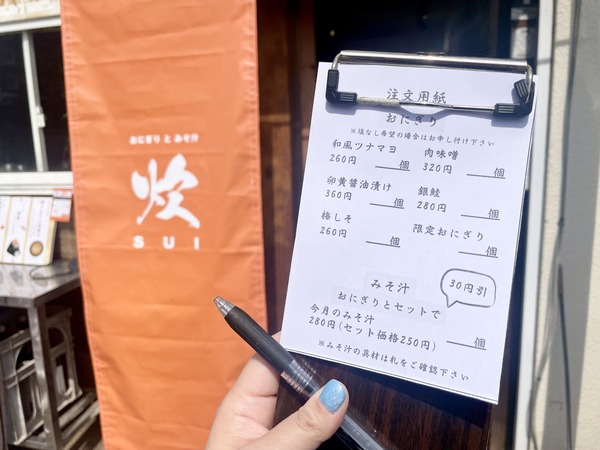 おにぎり と みそ汁
炊
SUI
注文用紙
おにぎり
※塩なし希望の場合はお申し付け下さい
和風ツナマヨ 肉味噌
260円 個 320円 個
卵黄醤油漬け 銀鮭
360円 個 280円 個
梅しそ 限定おにぎり
260円 個 個
みそ汁 30円引
おにぎりとセットで
今月のみそ汁
280円(セット価格250円) 個
※みそ汁の具材は札をご確認下さい